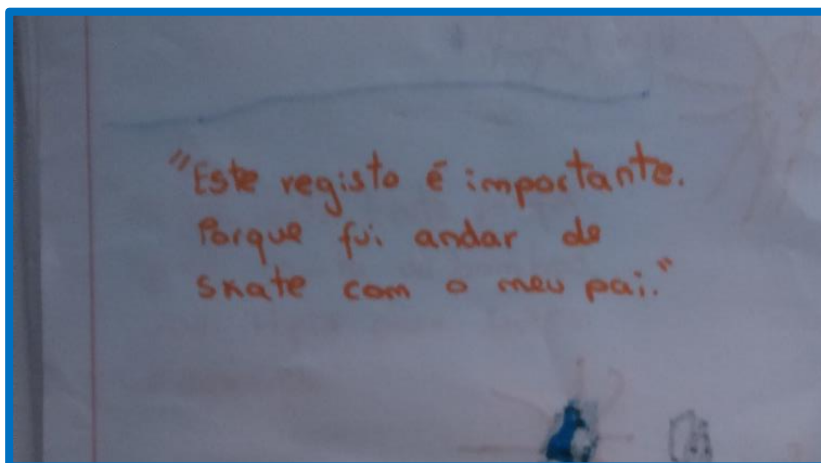 "Este registo é importante.
Porque fui andar de
skate com o meu pai."